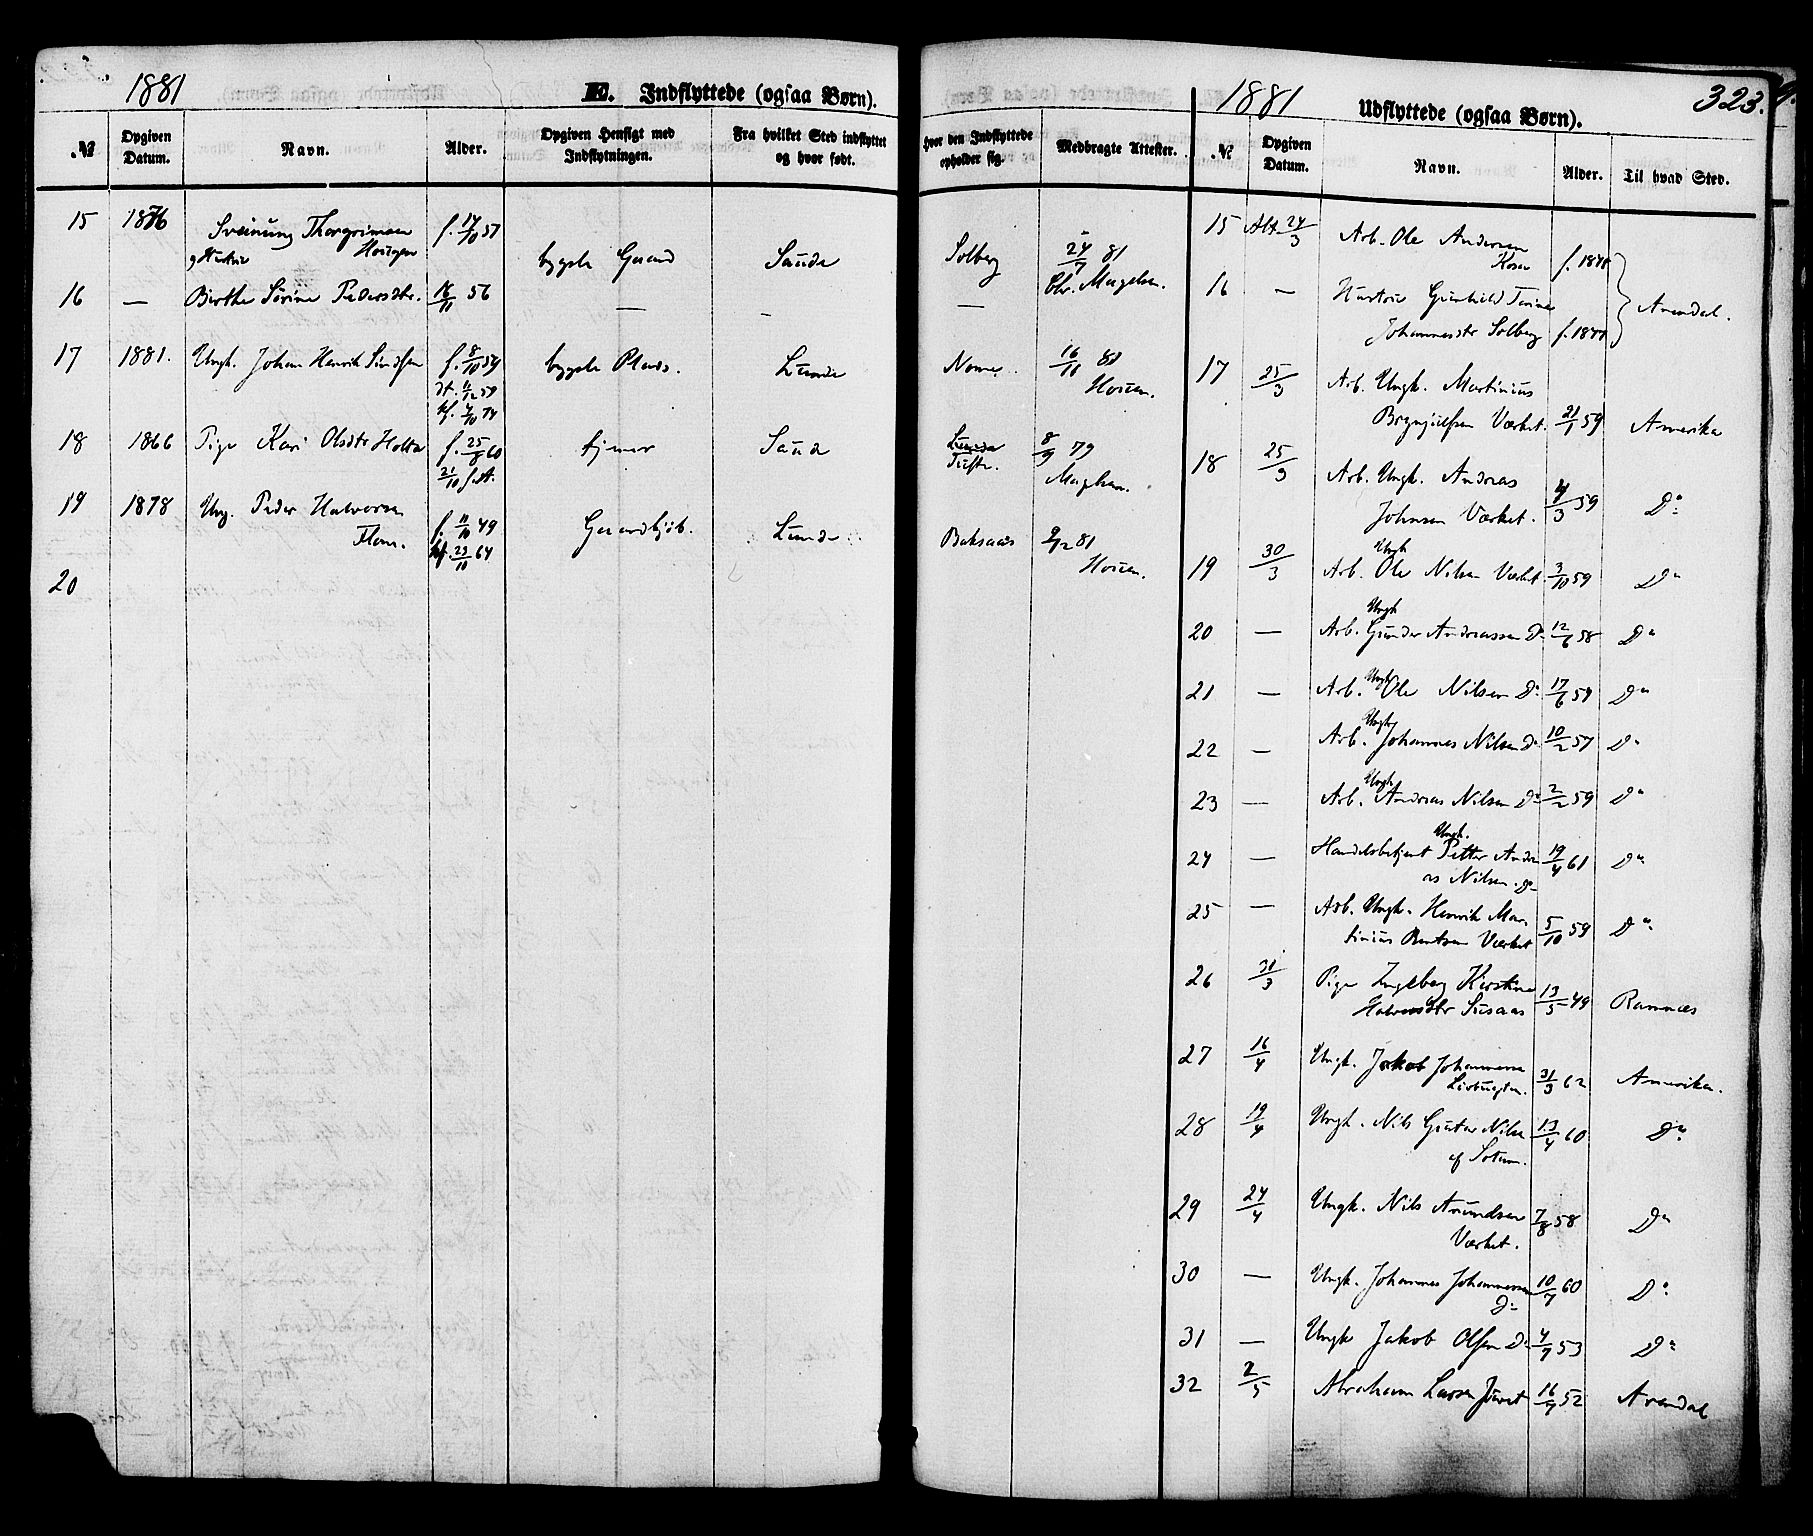 1881
E. Indflyttede (ogsaa Børn).
№
Opgiven Datum.
Navn.
Alder.
Opgiven Hensigt med Indflytningen.
Fra hvilket Sted indflyttet og hvor født.
Hvor den Indflyttede opholder sig.
Medbragte Attester.
15 1876 Sveinung Thorgrimsen f. 14/10 57
Hougen bygsle Gaard Saude Solberg 24/7 81
Chr. Magelsen.
16 — Birthe Serine Pedersdtr. 16/11 56 — — —
17 1881. Ungk. Johan Henrik f. 8/10 59 bygsle Plads. Lunde Nome. 16/11 81
dt. 11/12 59 Houen.
kf. 4/10 74
18 1866 Pige Kari Olsdtr Holta f. 25/8 60 tjener Saude Lunde 8/9 79
21/10 Magelsen.
19 1878 Ung. Peder Halvorsen
Flom. f. 11/10 49 Gaardkjøb. Lunde Baksaas 9/12 81
kf. 23/10 64 Houen.
20
1881
Udflyttede (ogsaa Børn).
323.
№
Opgiven Datum.
Navn.
Alder.
Til hvad Sted.
15 24/3 Arb. Ole Andersen
f. 18
16 — Hustru Gunhild Tarine Arendal.
Johannesdtr Solberg f. 18
17 25/3 Arb. Ungk. Martinius
Brynjulfsen Værket. 21/1 59 Amerika
18 25/3 Arb. Ungk. Andreas
Johnsen Værket. 4/3 59 Do
19 30/3 Arb. Ungk Ole Nilsen Værket. 3/10 59 Do
20 — Arb. Ungk Gunder Andreassen Do 12/6 58 Do
21 — Arb. Ungk Ole Nilsen Do 17/6 59 Do
22 — Arb. Ungk Johannes Nilsen Do 10/2 57 Do
23 — Arb. Ungk Andreas Nilsen Do 2/2 59 Do
24 — Handelsbetjent Ungk. Petter Andre
as Nilsen. Do 19/4 61 Do
25 — Arb. Ungk. Henrik Mar
tinius Bentsen Værket 5/10 59 Do
26 31/3 Pige Ingeborg Kirstine
Halvorsdtr 13/5 49 Ramnæs
27 16/4 Ungk. Jakob Johannessen
31/3 62 Amerika.
28 19/4 Ungk. Nils Gustav Nilsen 13/4 60 Do
29 24/4 Ungk. Nils Amundsen 7/8 58 Do
Værket.
30 — Ungk. Johannes Johannessen 10/7 60 Do
Do
31 — Ungk Jakob Olsen Do 4/9 53 Do
32 2/5 Abraham Larsen 16/9 52 Arendal